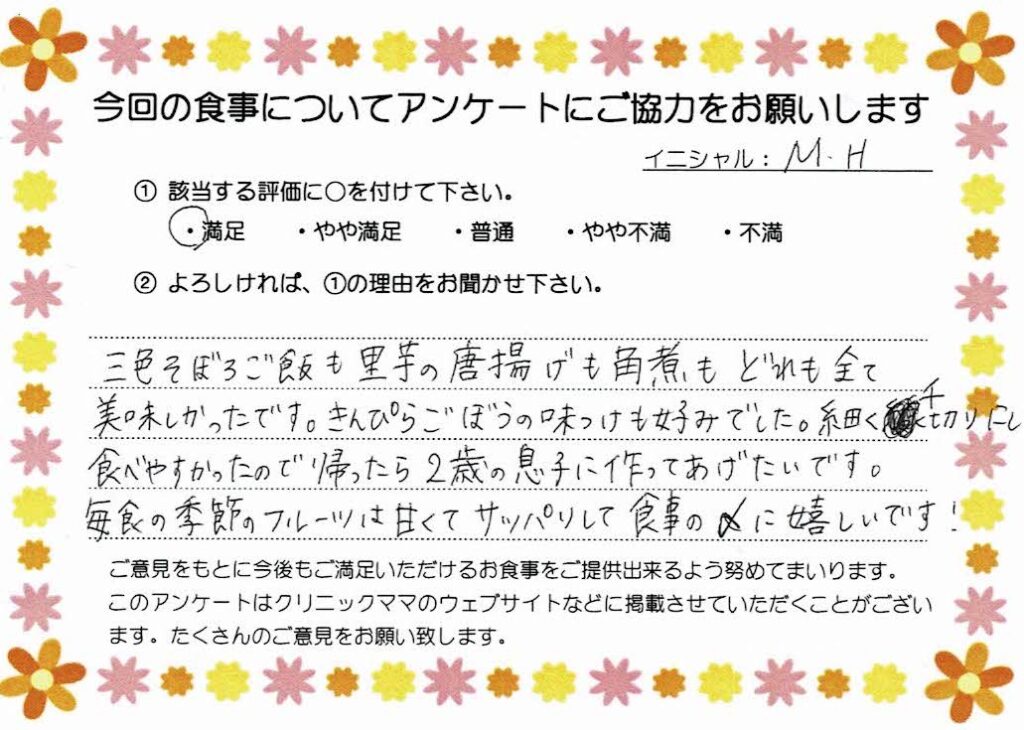 今回の食事についてアンケートにご協力をお願いします
イニシャル： M.H
① 該当する評価に○を付けて下さい。
・満足 ・やや満足 ・普通 ・やや不満 ・不満
② よろしければ、①の理由をお聞かせ下さい。
三色そぼろご飯も里芋の唐揚げも角煮もどれも全て
美味しかったです。きんぴらごぼうの味つけも好みでした。細く千切りにし
食べやすかったので帰ったら2歳の息子に作ってあげたいです。
毎食の季節のフルーツは甘くてサッパリして食事の〆に嬉しいです！
ご意見をもとに今後もご満足いただけるお食事をご提供出来るよう努めてまいります。
このアンケートはクリニックママのウェブサイトなどに掲載させていただくことがござい
ます。たくさんのご意見をお願い致します。